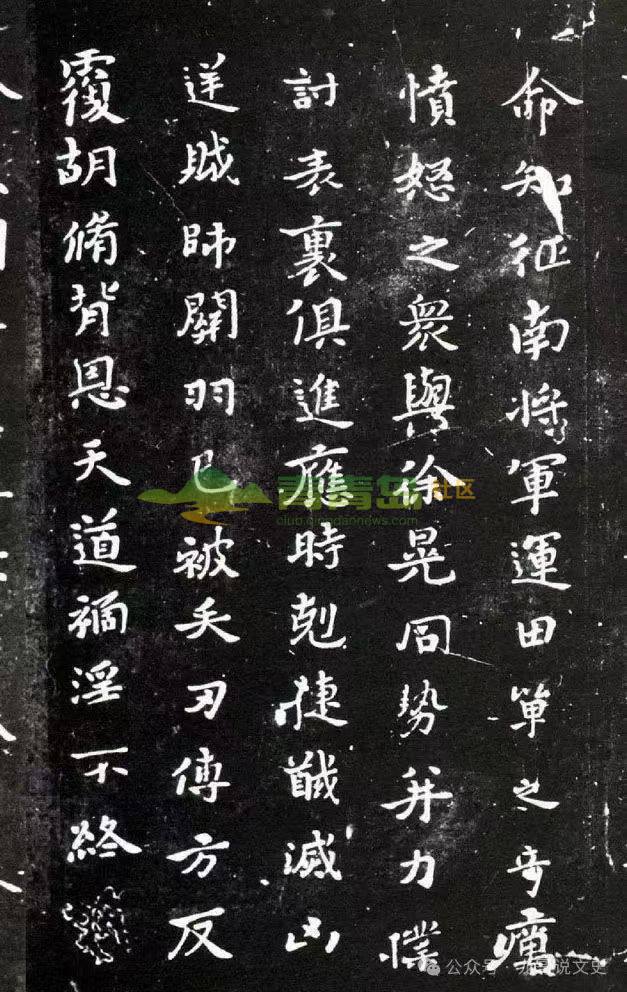 命知征南將軍運田單之奇厲
憤怒之衆與徐晃同勢并力撲
討表裏俱進應時剋捷馘滅凶
逆賊帥關羽已被矢刃傅方反
覆胡脩背恩天道禍淫不終
青青岛社区
club.qingdaonews.com
公众号 · 说文史